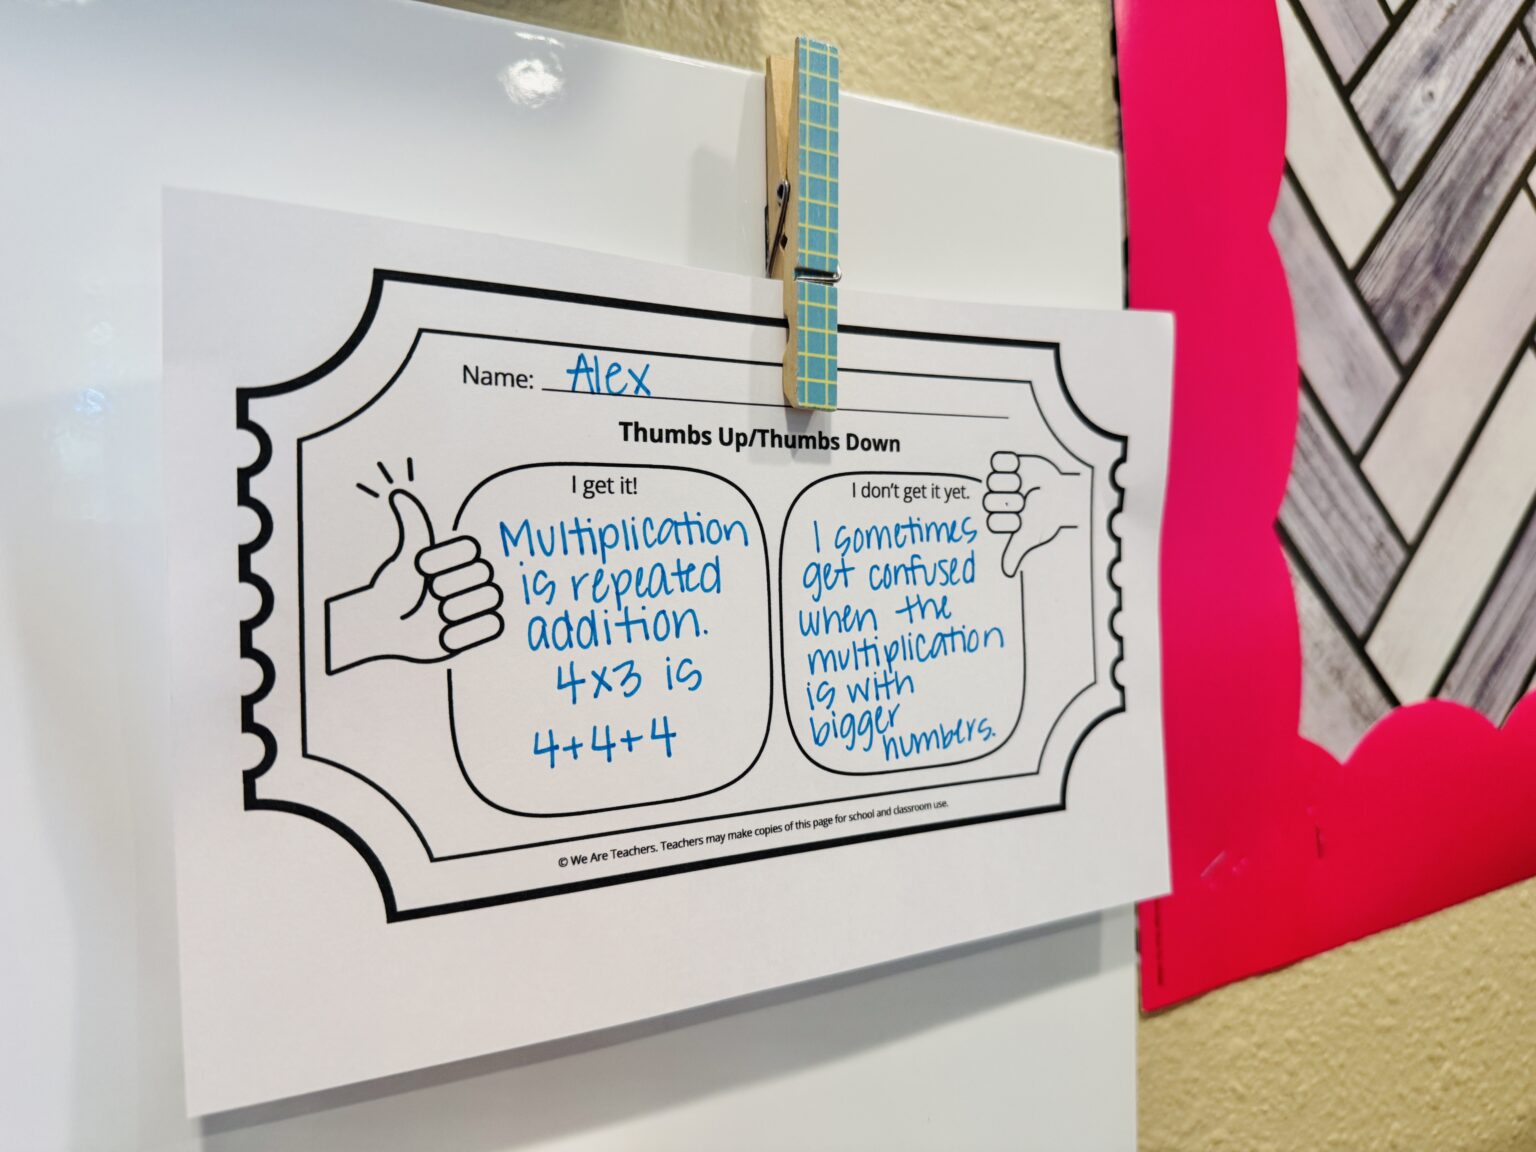 Name: Alex
Thumbs Up/Thumbs Down
I get it!
Multiplication
is repeated
addition.
4x3 is
4+4+4
I don't get it yet.
I sometimes
get confused
when the
multiplication
is with
bigger
numbers.
© We Are Teachers. Teachers may make copies of this page for school and classroom use.